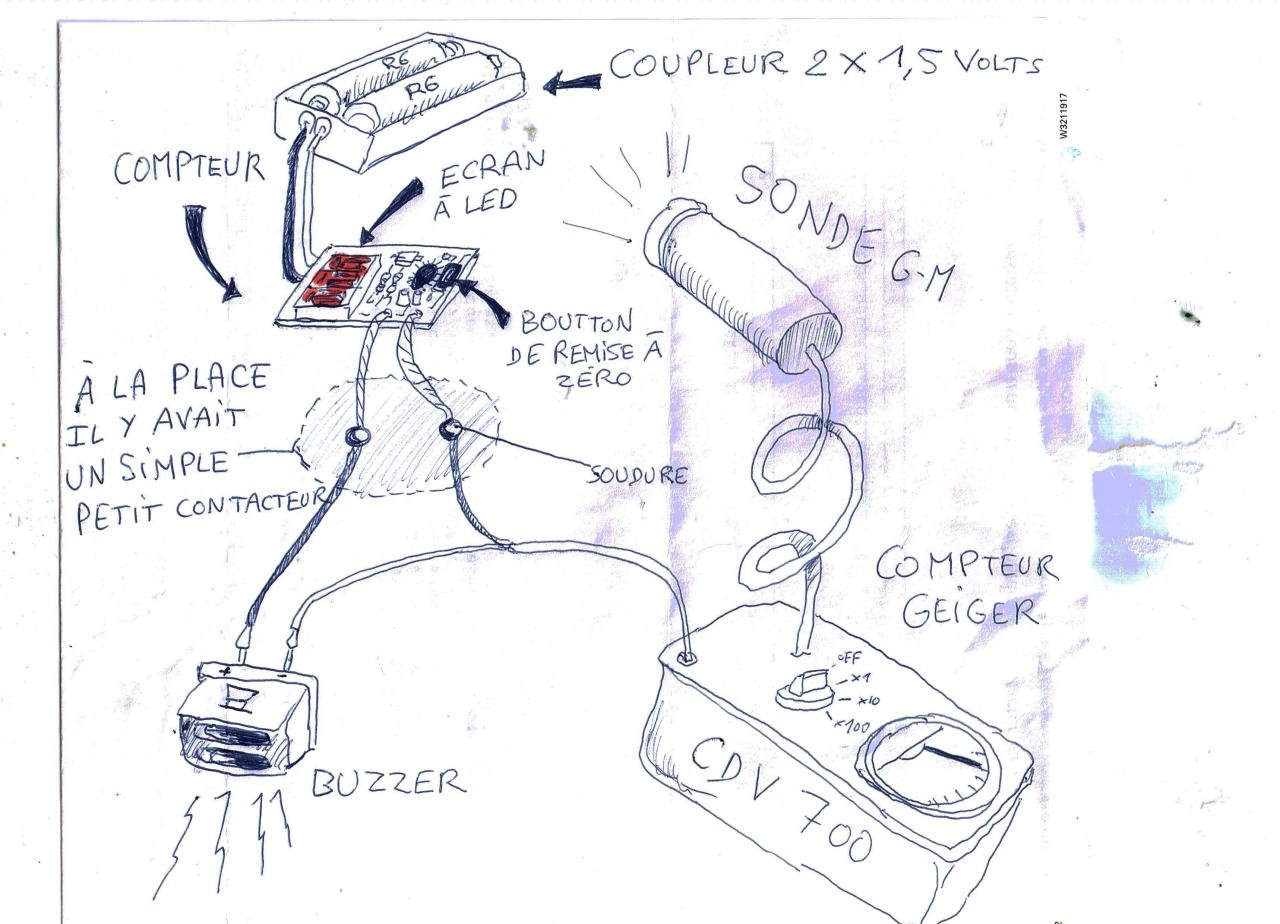 COUPLEUR 2 X 1,5 VOLTS
R6
R6
W3211917
COMPTEUR
ECRAN
À LED
SONDE G-M
BOUTTON
DE REMISE À
ZÉRO
À LA PLACE
IL Y AVAIT
UN SIMPLE
PETIT CONTACTEUR
SOUDURE
COMPTEUR
GEIGER
OFF
X1
X10
X100
+ -
CDV 700
BUZZER